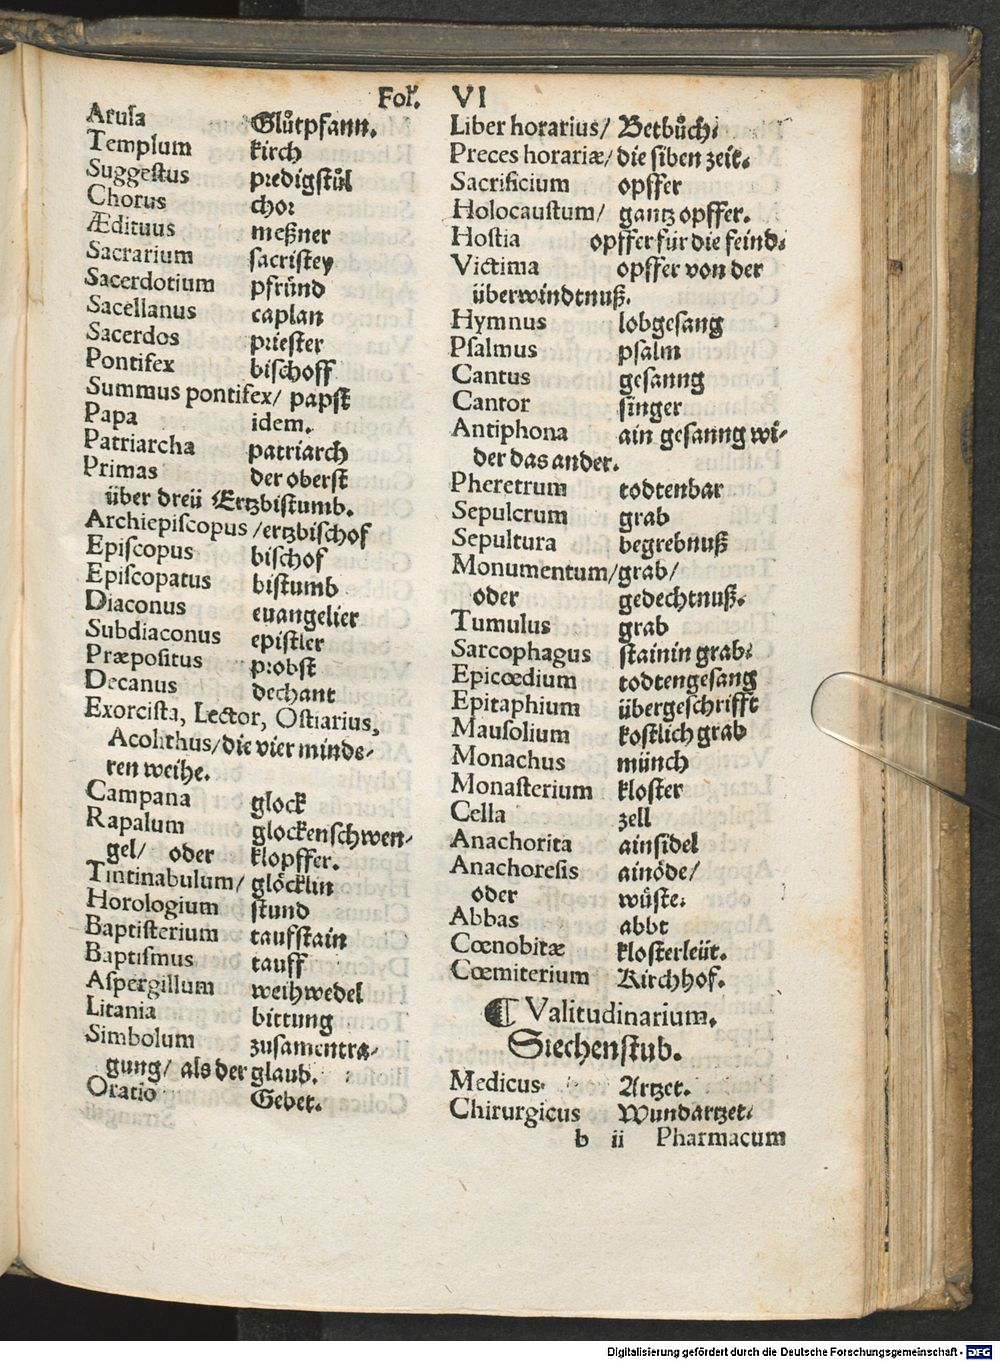 Fol. VI
Arula Glůtpfann.
Templum kirch
Suggestus predigstůl
Chorus chor
Ædituus meßner
Sacrarium sacristey
Sacerdotium pfründ
Sacellanus caplan
Sacerdos priester
Pontifex bischoff
Summus pontifex/ papst
Papa idem.
Patriarcha patriarch
Primas der oberst
über dreü Ertzbistumb.
Archiepiscopus /ertzbischof
Episcopus bischof
Episcopatus bistumb
Diaconus euangelier
Subdiaconus epistler
Præpositus probst
Decanus dechant
Exorcista, Lector, Ostiarius,
Acolithus/die vier minde-
ren weihe.
Campana glock
Rapalum glockenschwen-
gel/ oder klopffer.
Tintinabulum/ glöcklin
Horologium stund
Baptisterium taufstain
Baptismus tauff
Aspergillum weihwedel
Litania bittung
Simbolum zusamentra-
gung/ als der glaub.
Oratio Gebet.
Liber horarius/ Betbůch.
Preces horariæ/ die siben zeit.
Sacrificium opffer
Holocaustum/ gantz opffer.
Hostia opffer für die feind.
Victima opffer von der
überwindtnuß.
Hymnus lobgesang
Psalmus psalm
Cantus gesanng
Cantor singer
Antiphona ain gesanng wi-
der das ander.
Pheretrum todtenbar
Sepulcrum grab
Sepultura begrebnuß
Monumentum/grab/
oder gedechtnuß.
Tumulus grab
Sarcophagus stainin grab.
Epicœdium todtengesang
Epitaphium übergeschrifft
Mausolium kostlich grab
Monachus münch
Monasterium kloster
Cella zell
Anachorita ainsidel
Anachoresis ainöde/
oder wüste.
Abbas abbt
Cœnobitæ klosterleüt.
Cœmiterium Kirchhof.
¶ Valitudinarium.
Siechenstub.
Medicus Artzet.
Chirurgicus Wundartzet.
b ii Pharmacum
Digitalisierung gefördert durch die Deutsche Forschungsgemeinschaft - DFG